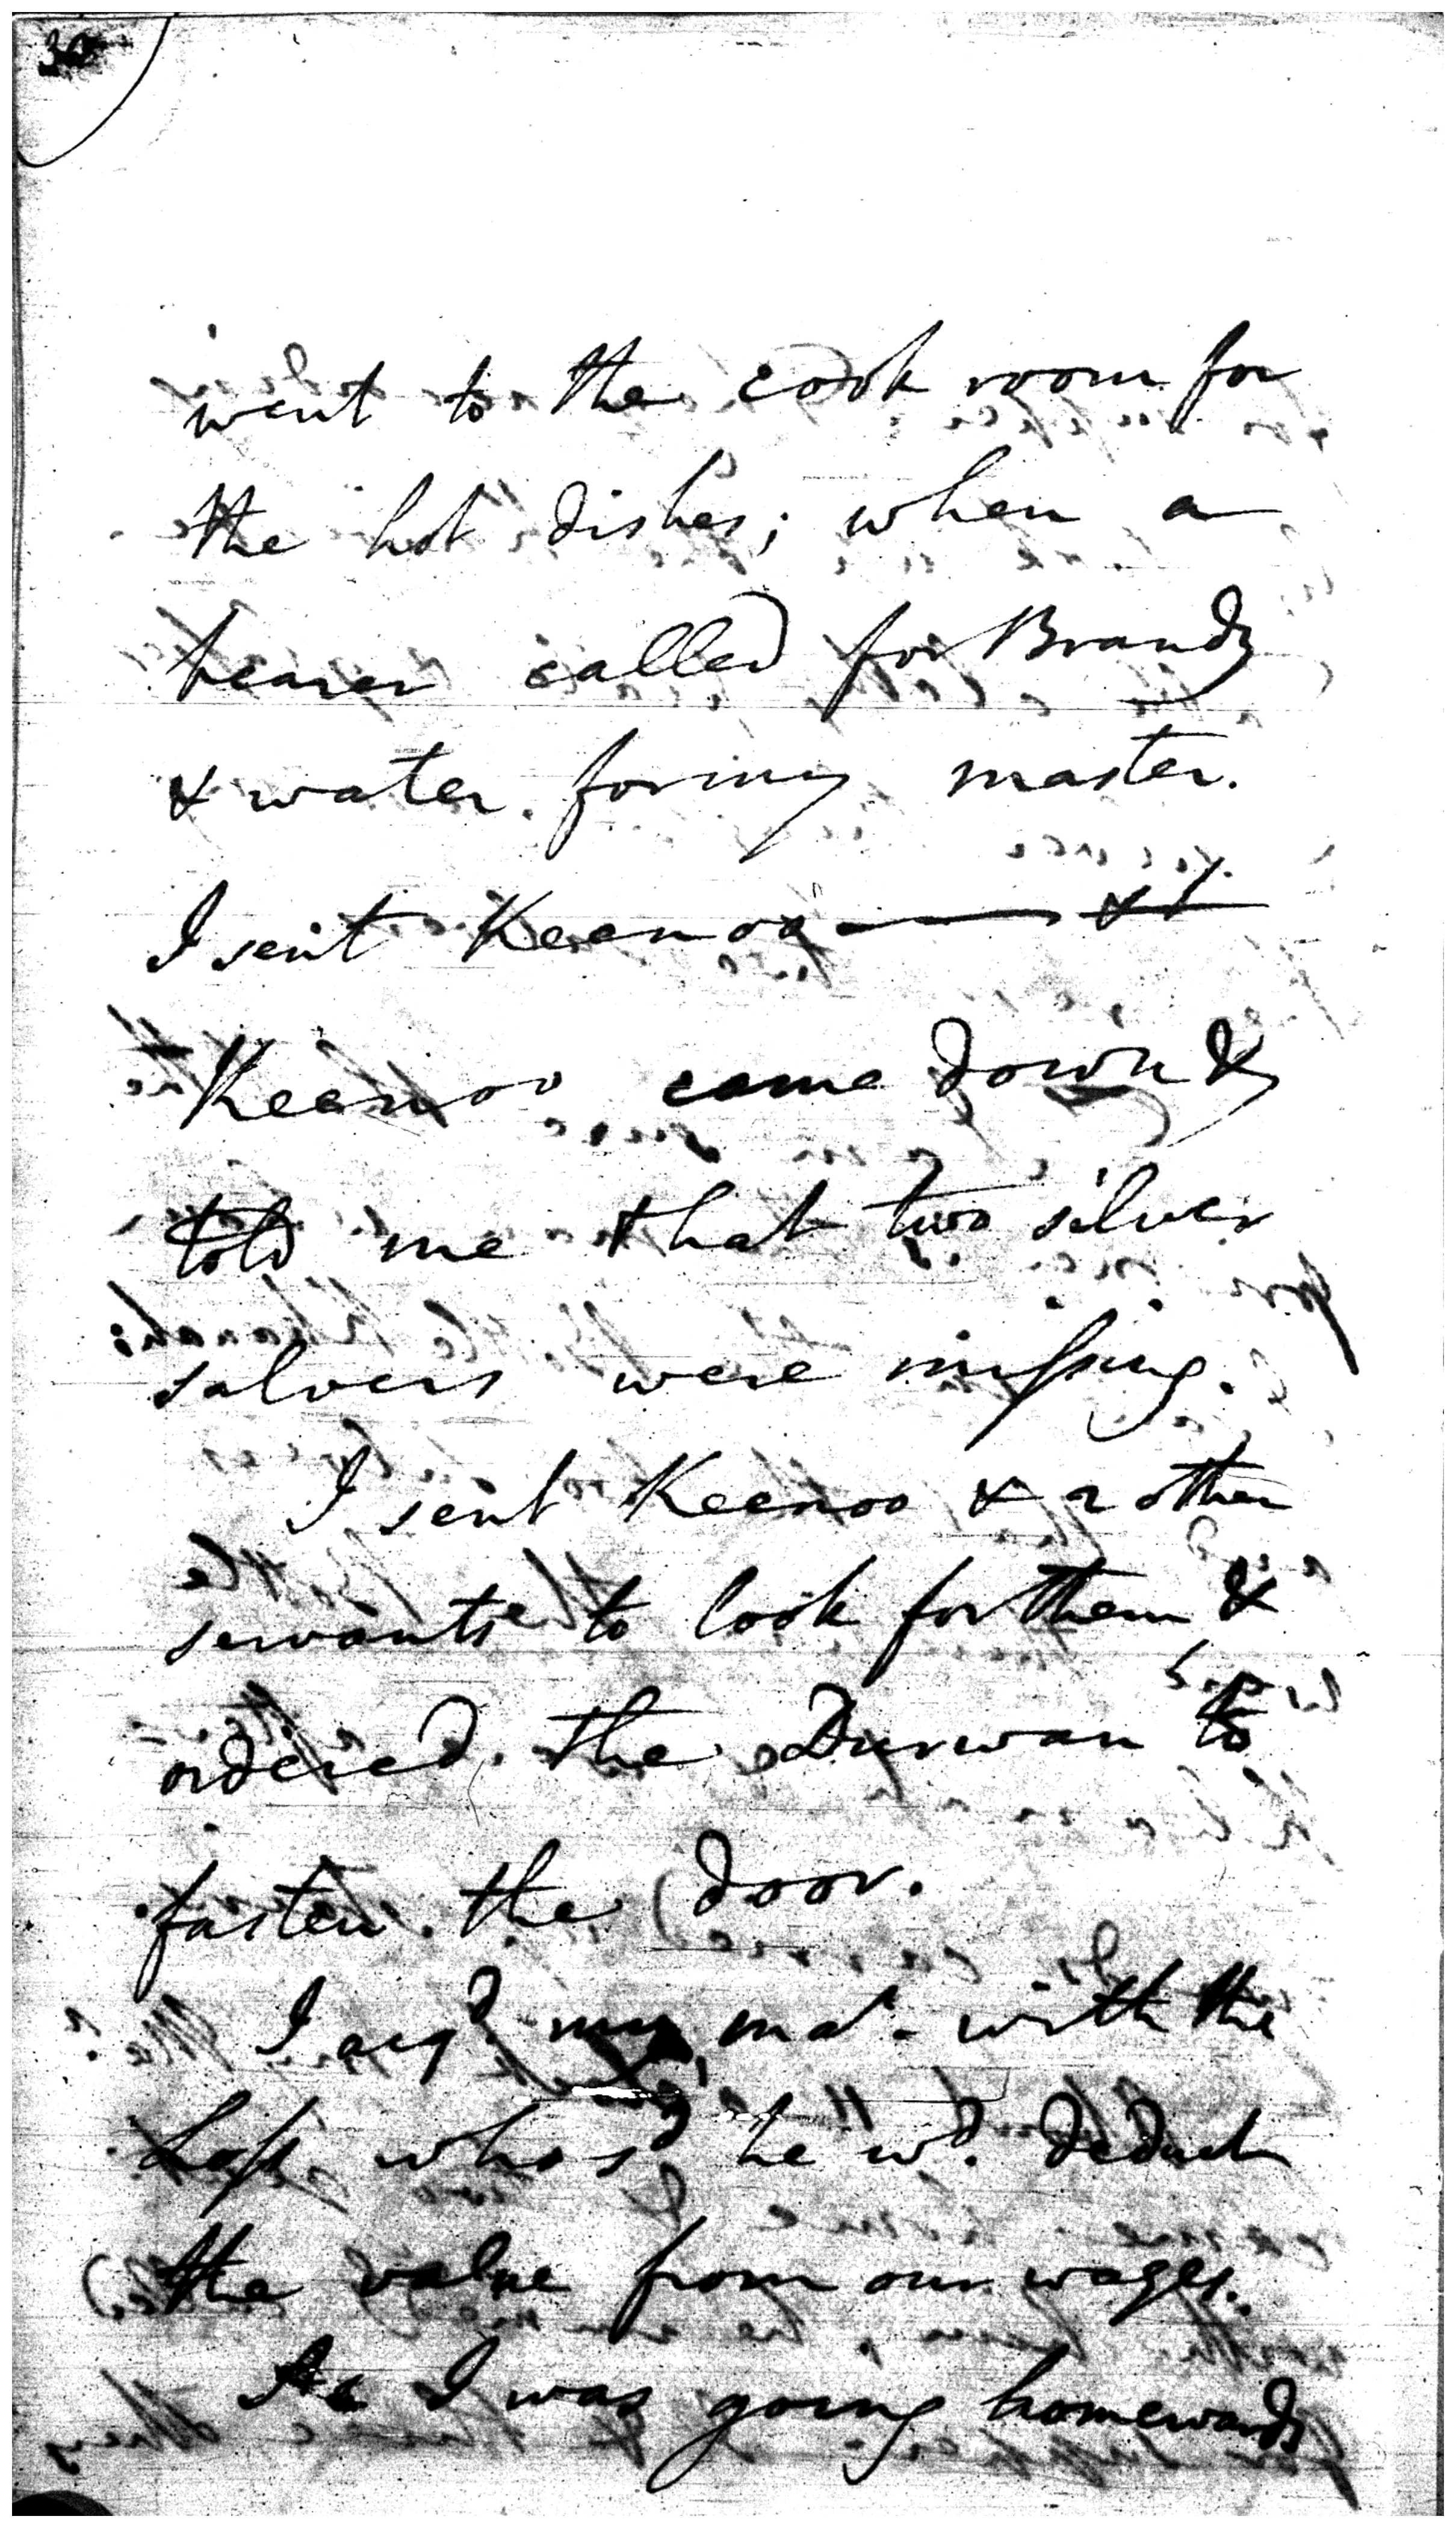 30
went to the cook room for
the hot dishes; when a
bearer called for Brandy
& water for my master.
I sent Keenoo & I
Keenoo came down &
told me that two silver
salvers were missing.
I sent Keenoo & 2 other
servants to look for them &
ordered the Durwan to
fasten the door.
I acqd my mar. with the
Loss who sd he wd. deduct
the value from our wages.
As I was going homewards